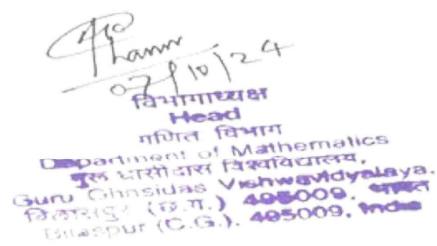 07/10/24
विभागाध्यक्ष
Head
गणित विभाग
Department of Mathematics
गुरू घासीदास विश्वविद्यालय,
Guru Ghasidas Vishwavidyalaya.
बिलासपुर (छ.ग.) 495009, भारत
Bilaspur (C.G.), 495009, India